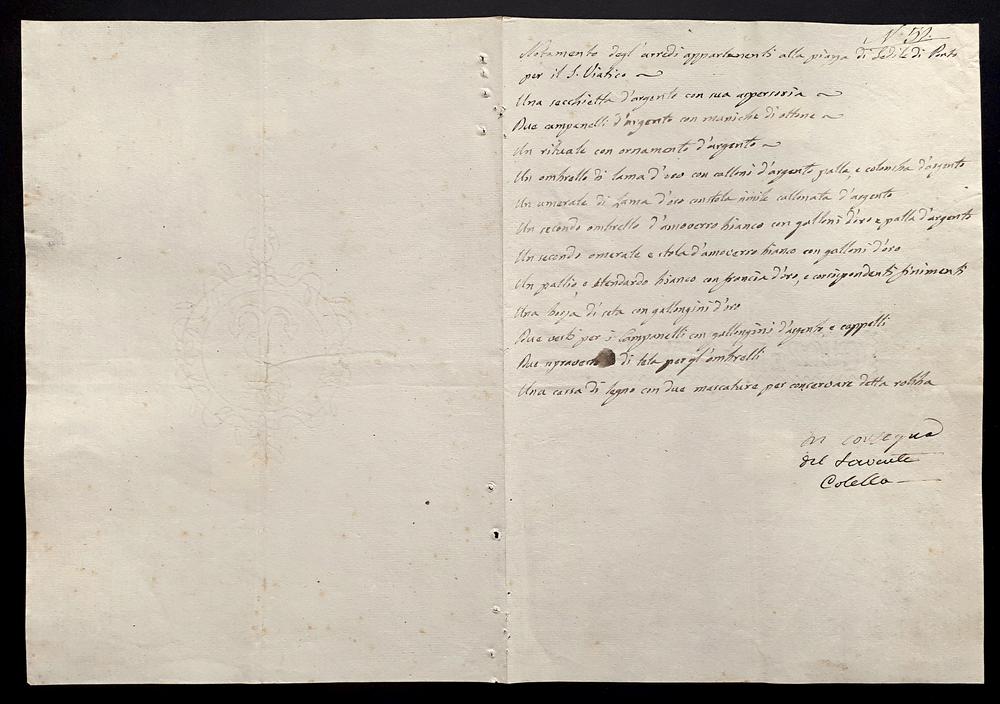 N.° 52
Notamento degl'arredi appartenenti alla piazza di Sedile di Porto
per il S. Viatico
Una secchietta d'argento con sua aspersoria
Due campanelli d'argento con maniche di ottone
Un rituale con ornamento d'argento
Un ombrello di lama d'oro con galloni d'argento, palla, e d'argento
Un umerale di Lama d'oro con stola simile gallonata d'argento
Un secondo ombrello d'amoverro bianco con galloni d'oro e palla d'argento
Un secondo omerale e stola d'amoverro bianco con galloni d'oro
Un pallio o stendardo bianco con francia d'oro, e corrispondenti finimenti
Una borza di seta con gallongini d'oro
Due vesti per i Campanelli con gallongini d'argento, e cappelli
Due di tela per gl'ombrelli
Una cassa di legno con due mascature per conservare detta robba
In consegna
del Servente
Colella